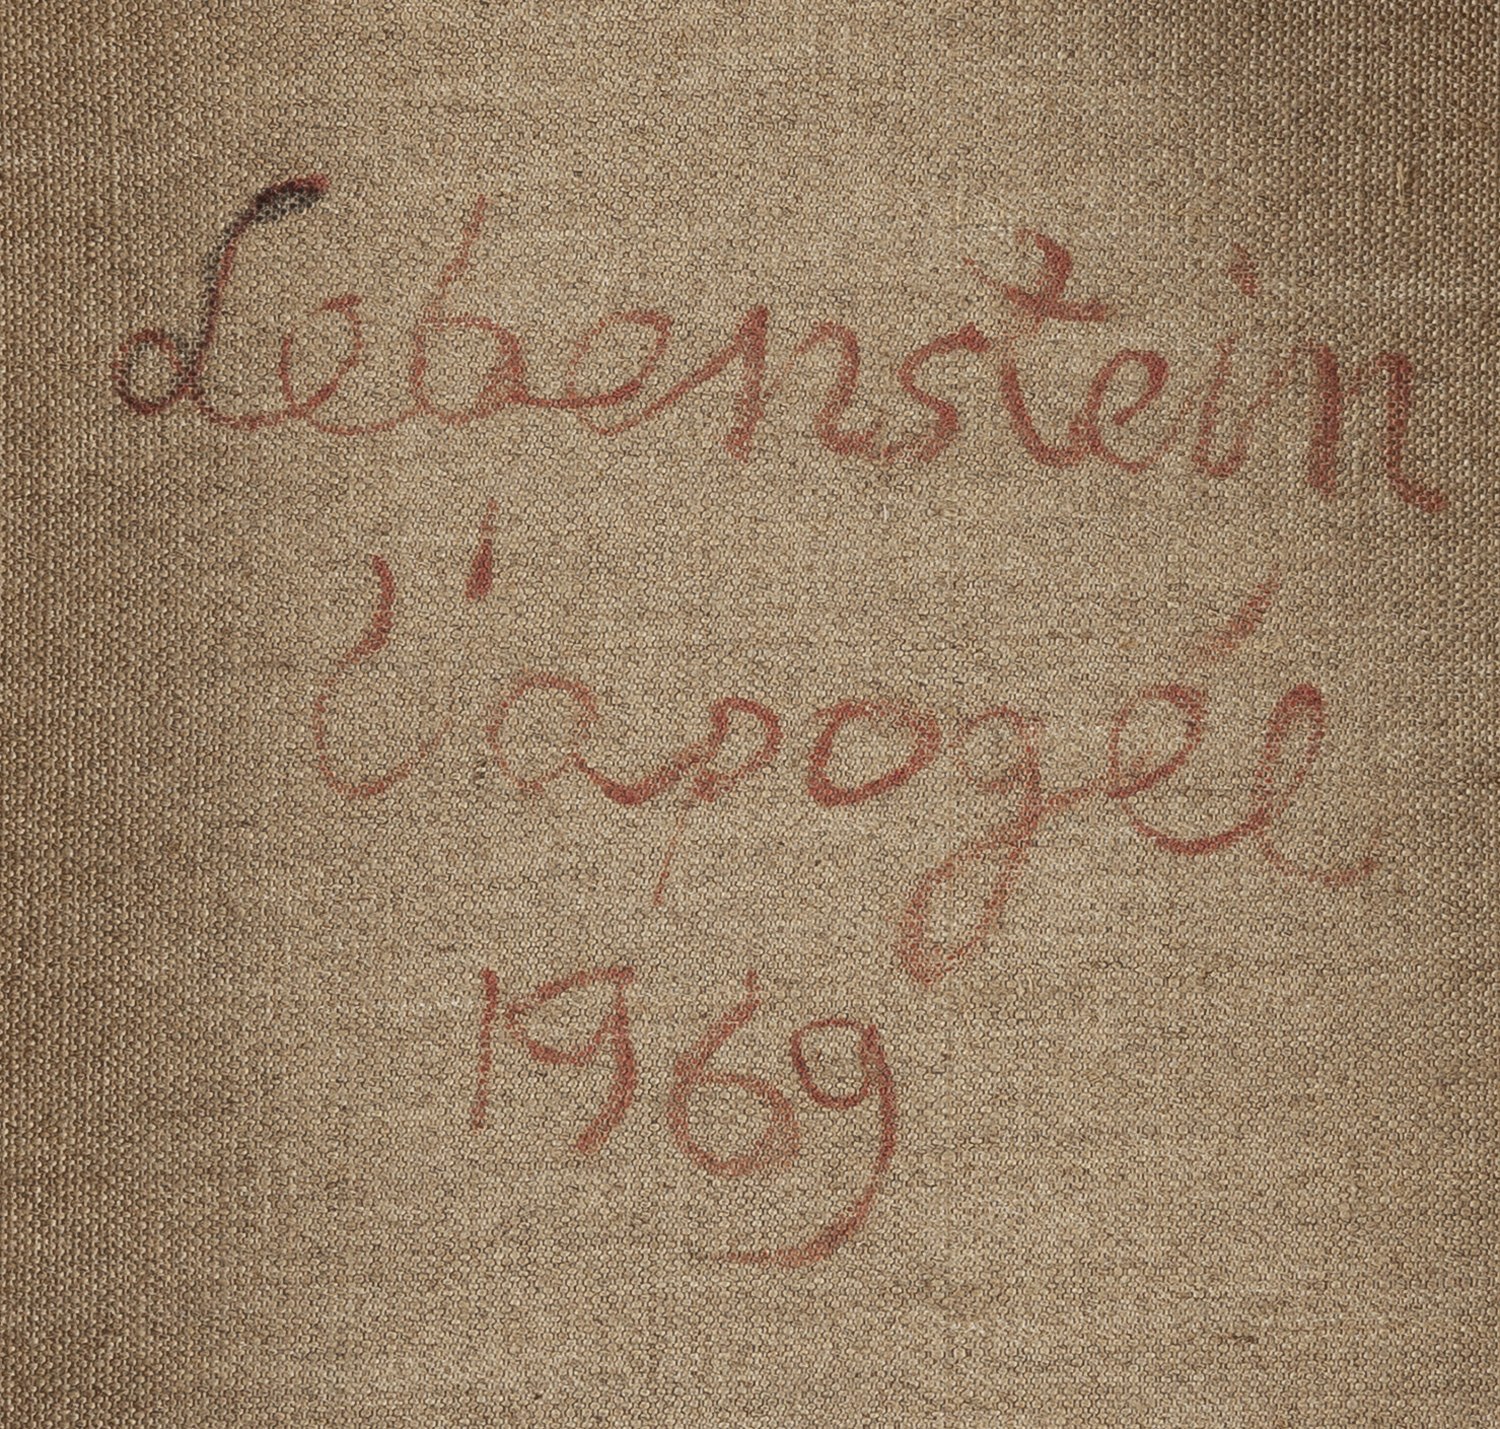 Lebenstein
l'apogée
1969